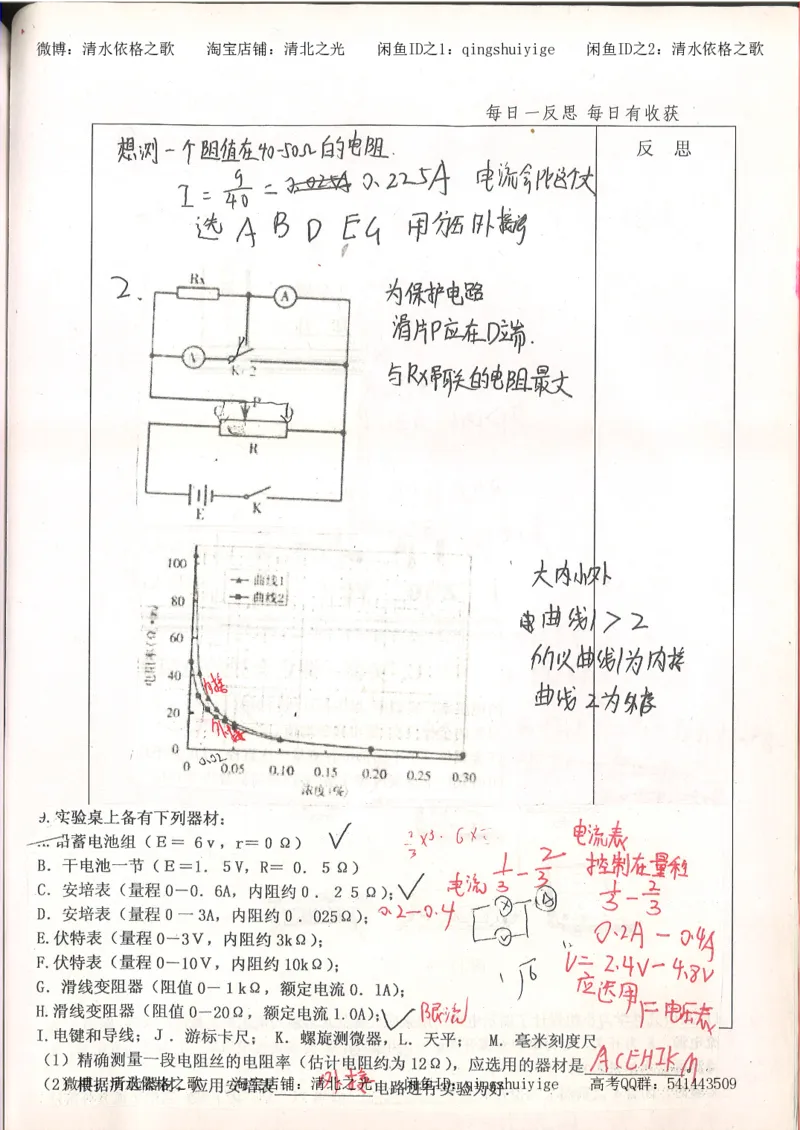 微博：清水依格之歌 淘宝店铺：清北之光 闲鱼ID之1：qingshuiyige 闲鱼ID之2：清水依格之歌
每日一反思 每日有收获
反 思
想测一个阻值在40-50Ω的电阻.
I = 9/40 = 0.225A 电流会比这个大
选 A B D E G 用分压外接
2.
Rx
A
V
K 2
P
C D
R
E K
为保护电路
滑片P应在D端.
与RX串联的电阻最大
100
80
60
40
20
0
电阻率(Ω·m)
曲线1
曲线2
内接
外接
0.02
0 0.05 0.10 0.15 0.20 0.25 0.30
浓度(%)
大内小外
曲线1>2
所以曲线1为内接
曲线2为外接
9.实验桌上备有下列器材：
A.铅蓄电池组（E＝ 6v，r＝0Ω）
B．干电池一节（E=1．5V，R＝ 0．5Ω）
C．安培表（量程0-0．6A，内阻约0．25Ω）；
D．安培表（量程0一3A，内阻约0．025Ω）；
E.伏特表（量程0—3V，内阻约3kΩ）；
F.伏特表（量程0—10V，内阻约10kΩ）；
G．滑线变阻器（阻值0－1kΩ，额定电流0．1A）；
H.滑线变阻器（阻值0-20Ω，额定电流1.0A）；
I.电键和导线； J．游标卡尺； K．螺旋测微器， L．天平； M．毫米刻度尺
（1）精确测量一段电阻丝的电阻率（估计电阻约为12Ω），应选用的器材是 ACEHIKM
（2）根据所选器材，应用安培表 外接 电路进行实验为好．
电流 1/3 - 2/3
0.2-0.4
限流
V
A
电流表
控制在量程
1/3 - 2/3
0.2A - 0.4A
U= 2.4V-4.8V
应选用
F电压表
微博：清水依格之歌 淘宝店铺：清北之光 闲鱼ID：qingshuiyige 高考QQ群：541443509